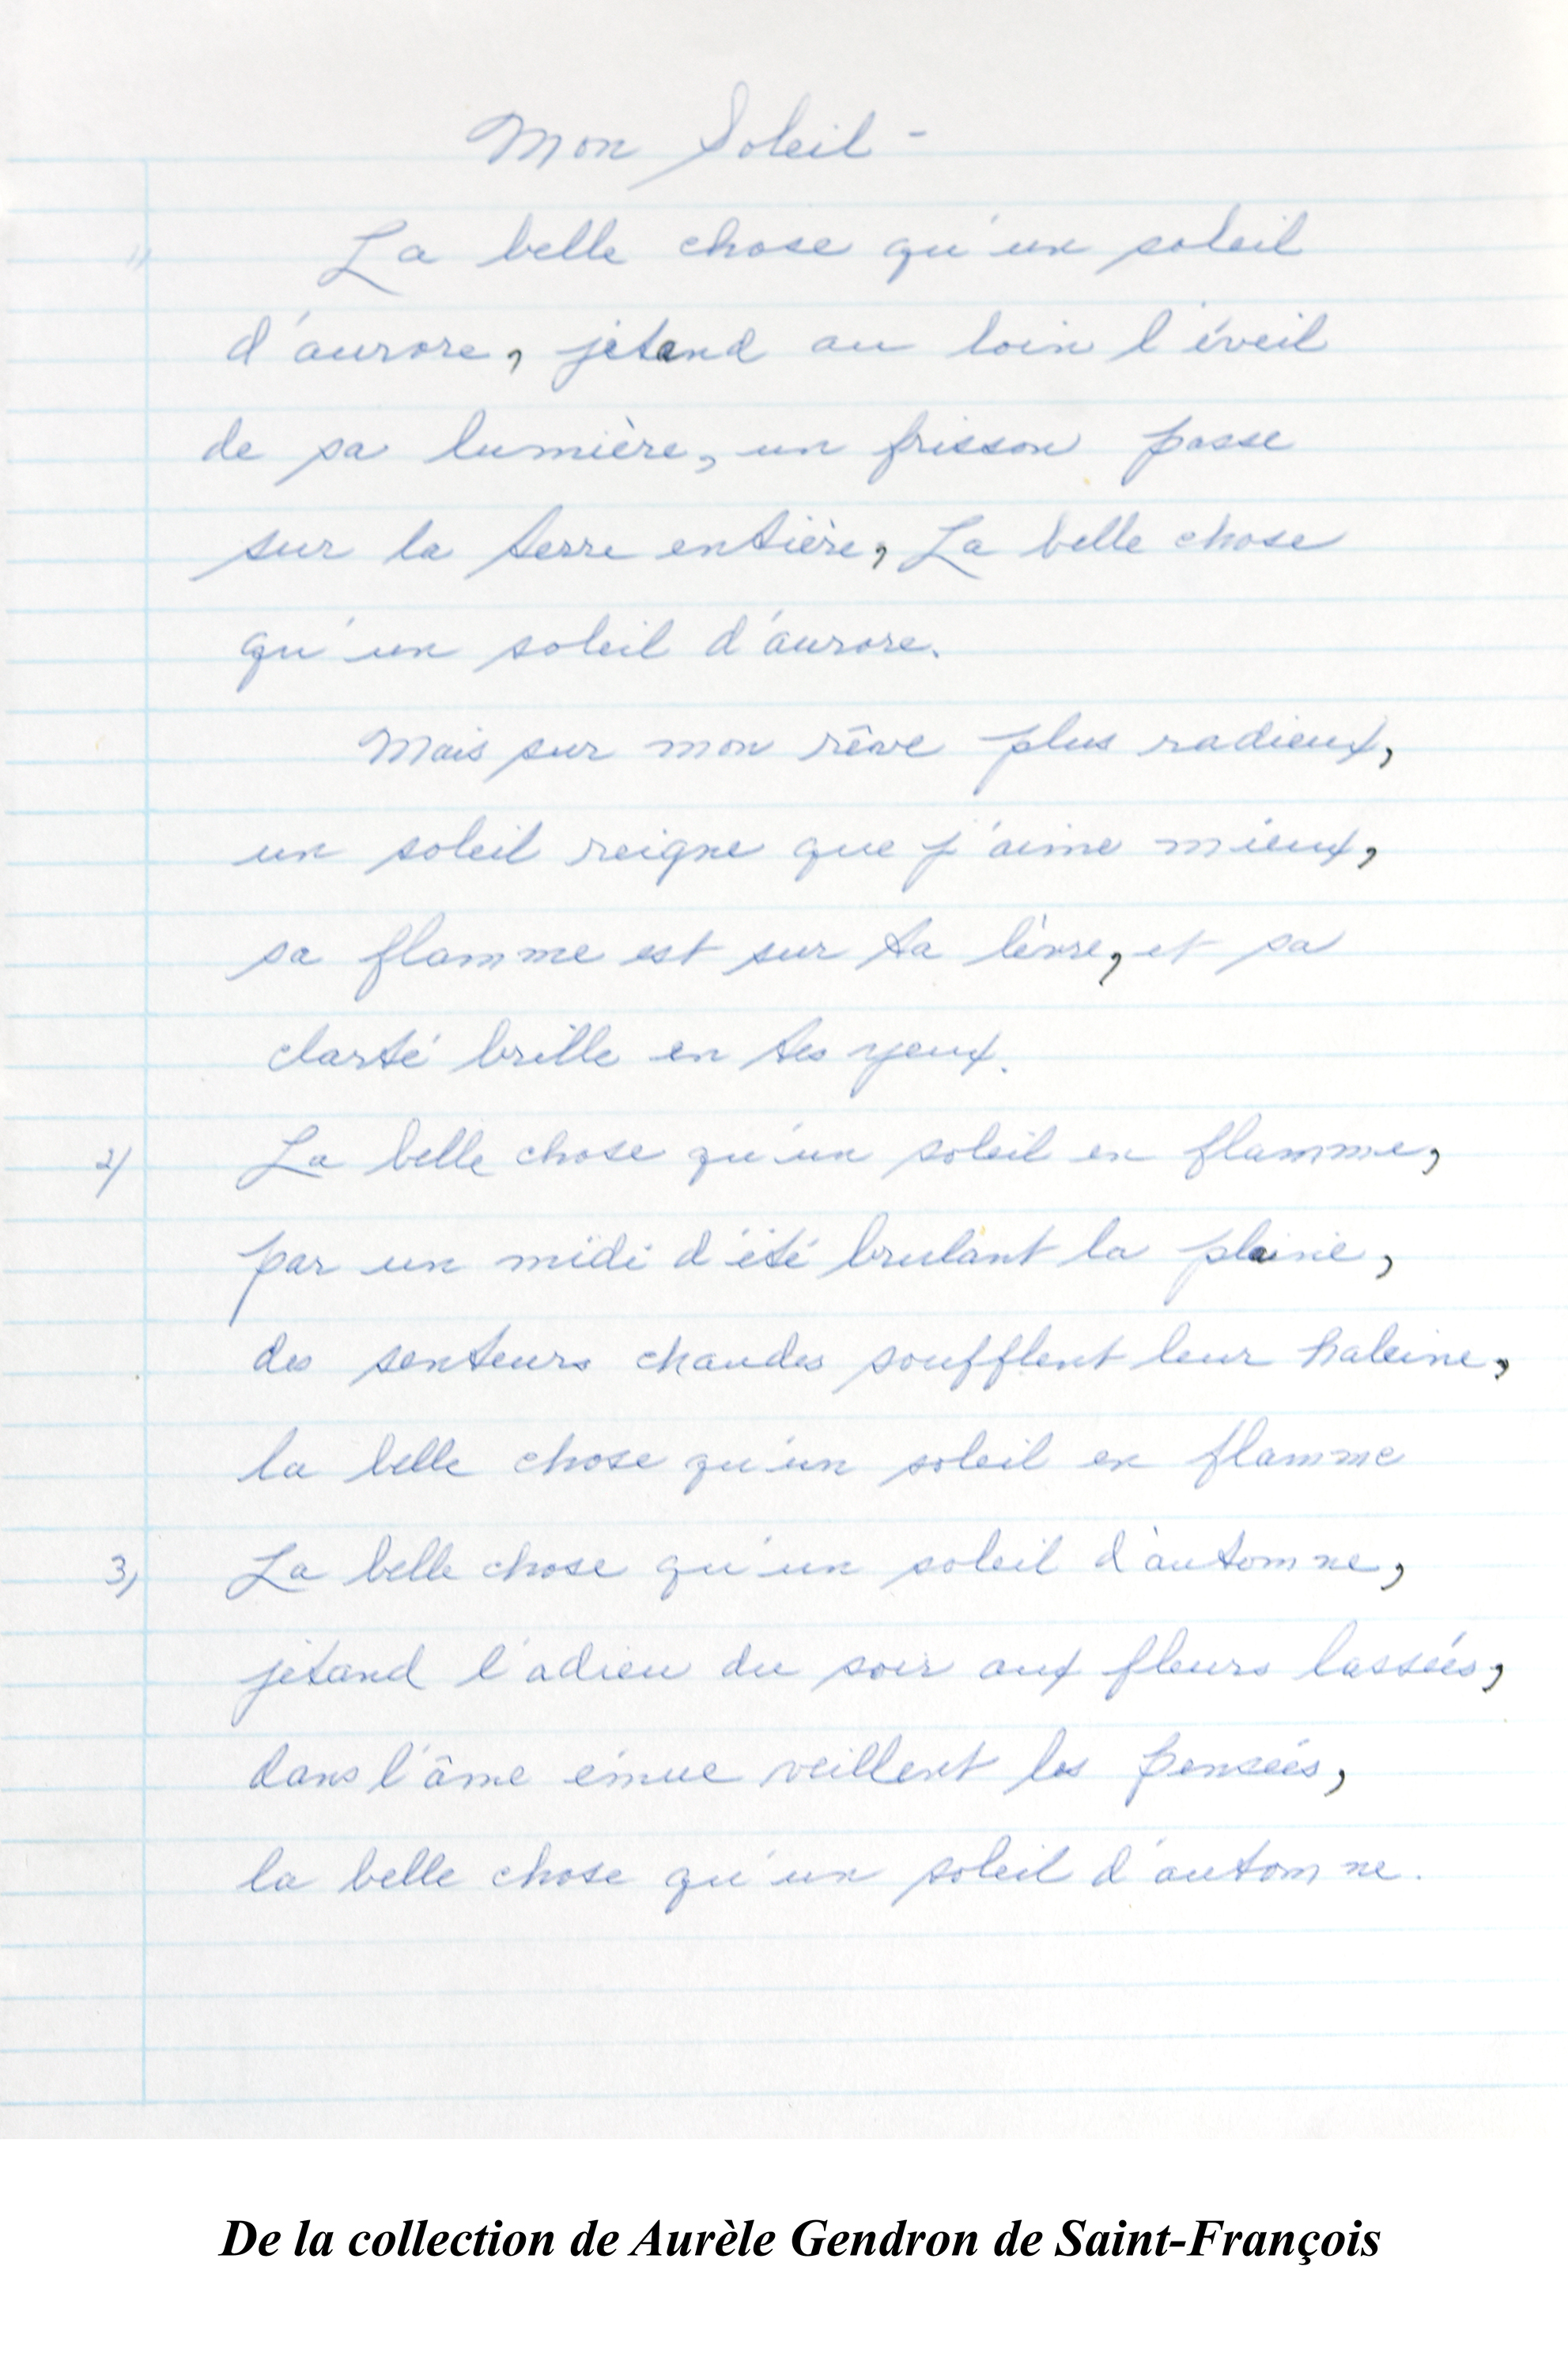 Mon Soleil -
1) La belle chose qu'un soleil
d'aurore, jetand au loin l'éveil
de sa lumière, un frisson passe
sur la terre entière, La belle chose
qu'un soleil d'aurore.
Mais sur mon rêve plus radieux,
un soleil reigne que j'aime mieux,
sa flamme est sur ta lèvre, et sa
clarté brille en tes yeux.
2) La belle chose qu'un soleil en flamme,
par un midi d'été brulant la plaine,
des senteurs chaudes soufflent leur haleine,
la belle chose qu'un soleil en flamme
3) La belle chose qu'un soleil d'automne,
jetand l'adieu du soir aux fleurs lassées,
dans l'âme émue veillent les pensées,
la belle chose qu'un soleil d'automne.
De la collection de Aurèle Gendron de Saint-François